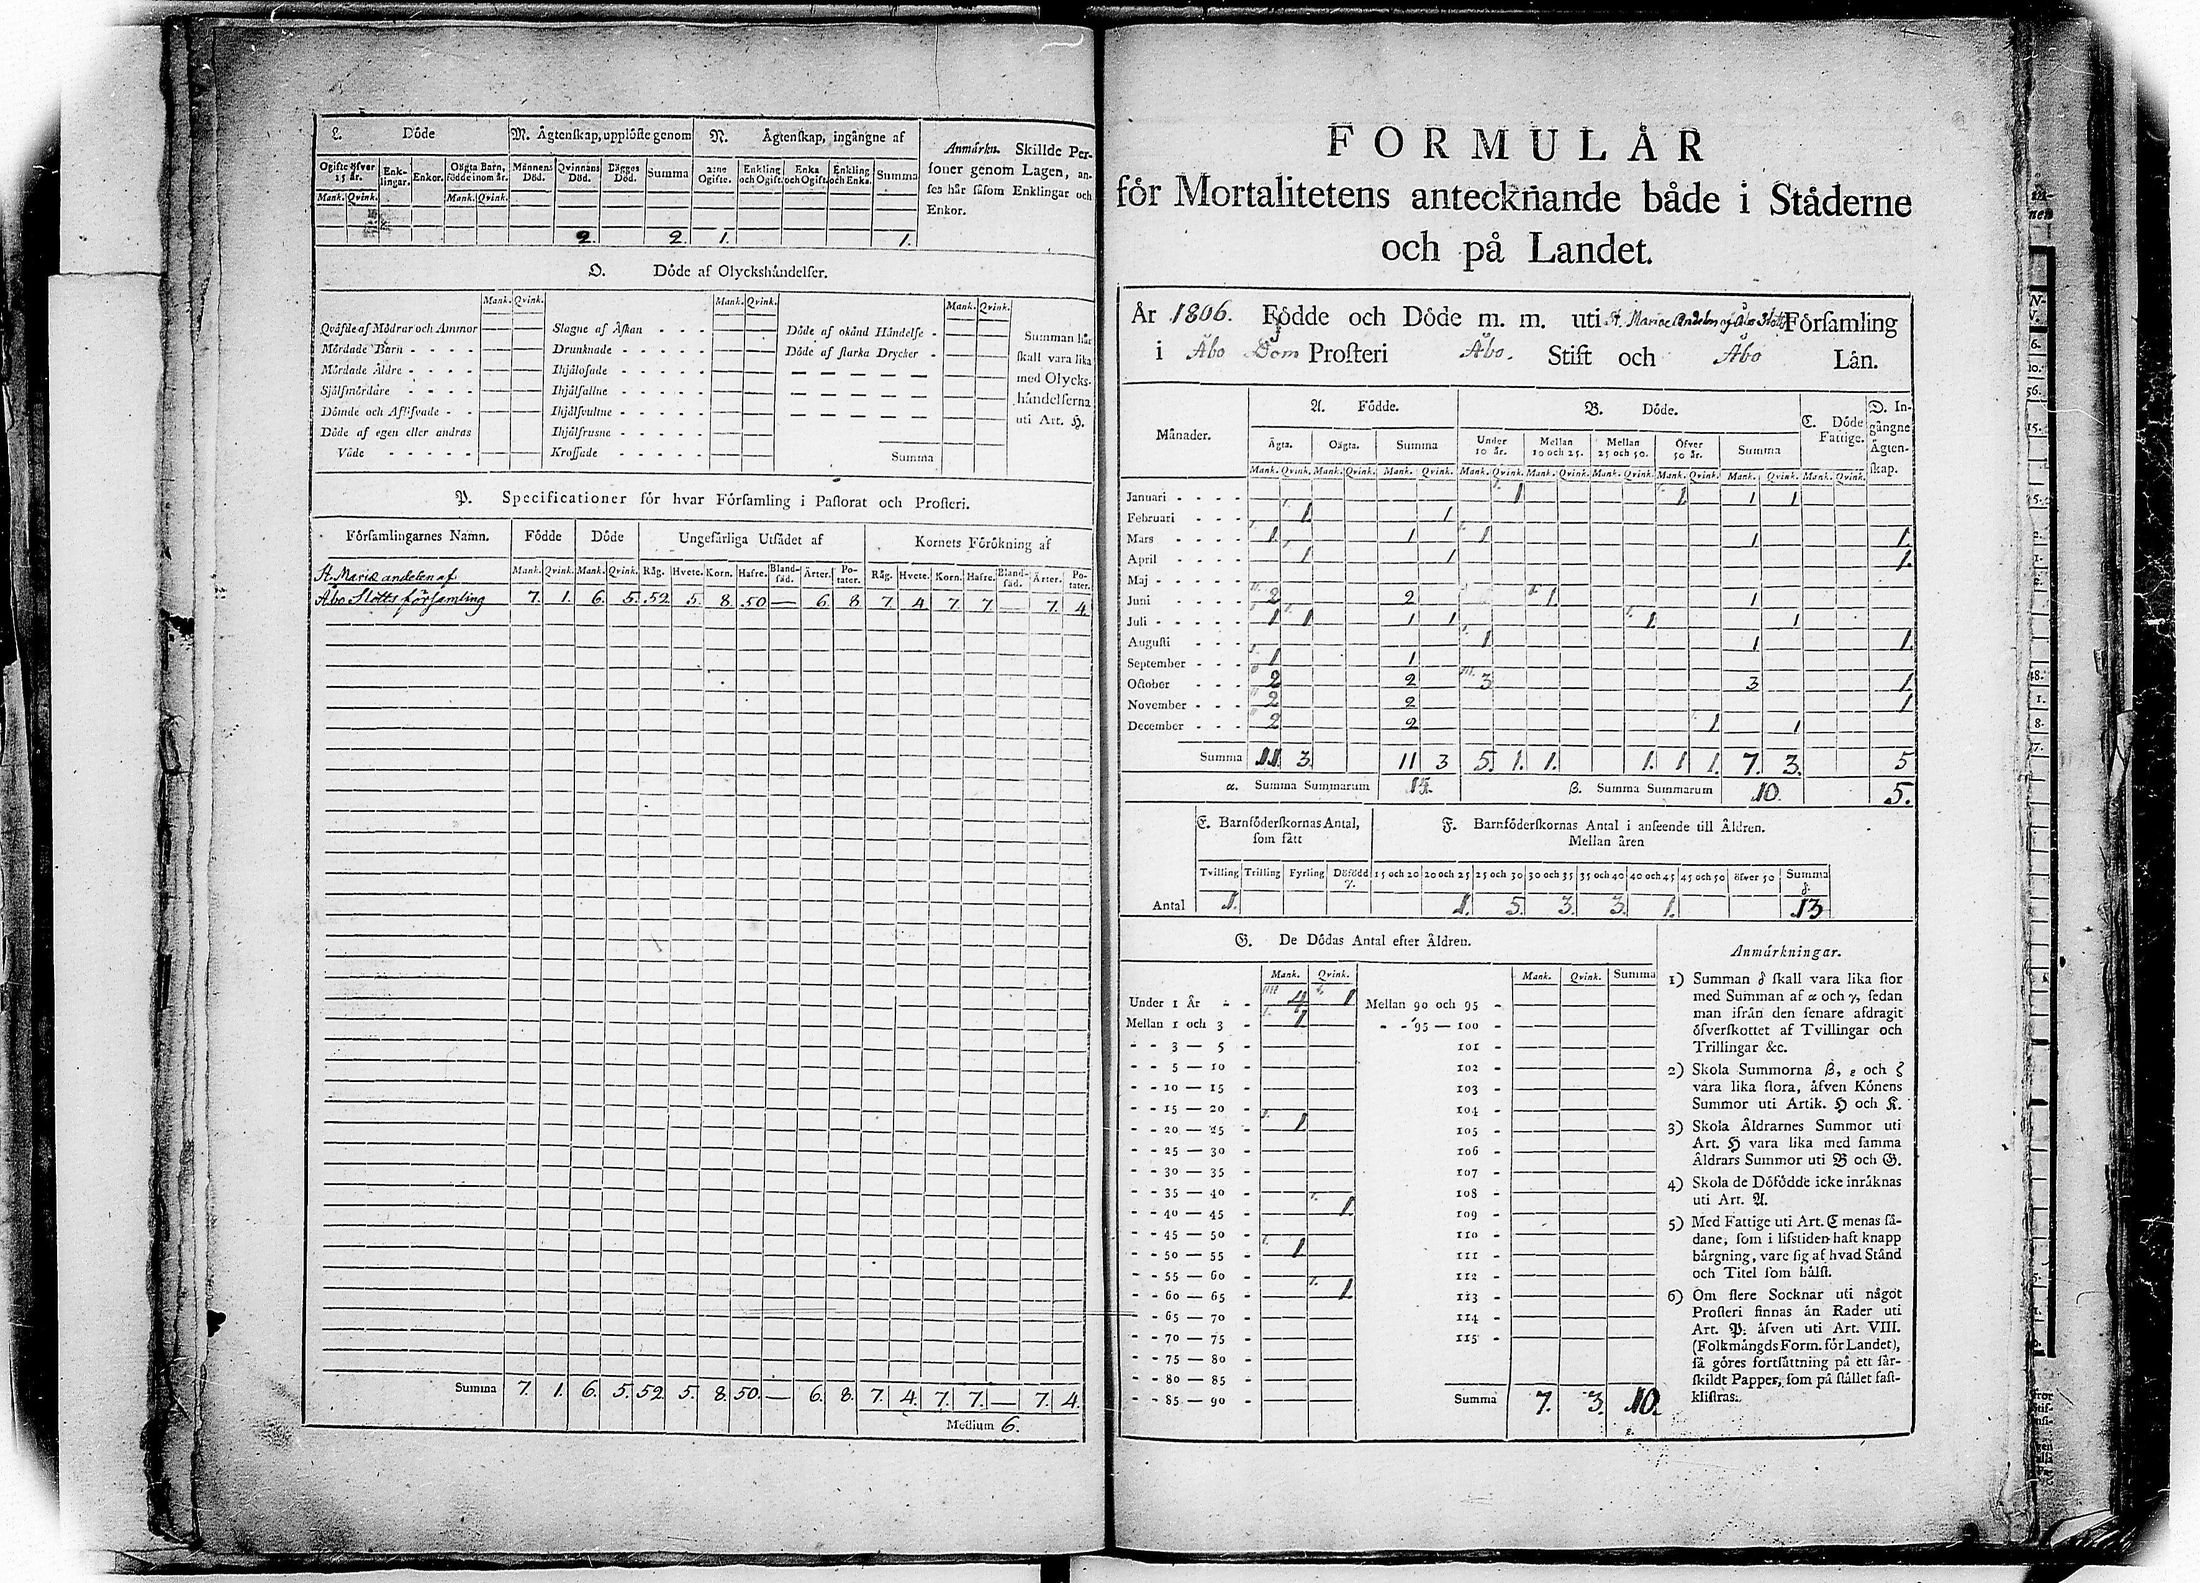 L. Döde
M. Ägtenskap, upplöste genom
N. Ägtenskap, ingångne af
Anmärkn. Skillde Per-
soner genom Lagen, an-
ses här såsom Enklingar och
Enkor.
Ogifte öfver 15 år. Enk-lingar. Enkor. Oägta Barn, födde inom år. Männens Död. Qvinnans Död. Bägges Död. Summa 2:ne Ogifte. Enkling och Ogift. Enka och Ogift. Enkling och Enka. Summa
Mank. Qvink. Mank. Qvink.
2. 2. 1. 1.
O. Döde af Olyckshändelser.
Mank. Qvink. Mank. Qvink. Mank. Qvink.
Qväfde af Mödrar och Ammor
Mördade Barn - - - -
Mördade Äldre - - - -
Självmördare - - - -
Dömde och Aflifvade - -
Döde af egen eller andras
Våde - - - - -
Slagne af Åskan - - -
Drunknade - - - - -
Ihjälosade - - - - -
Ihjälfallne - - - - -
Ihjälsvultne - - - -
Ihjälfrusne - - - - -
Krossade - - - - -
Döde af okänd Händelse -
Döde af starka Drycker -
Summa
Summan här
skall vara lika
med Olycks-
händelserna
uti Art. H.
P. Specificationer för hvar Församling i Pastorat och Prosteri.
Församlingarnes Namn. Födde Döde Ungefärliga Utsädet af Kornets Förökning af
Mank. Qvink. Mank. Qvink. Råg. Hvete. Korn. Hafre. Bland-säd. Ärter. Po-tater. Råg. Hvete. Korn. Hafre. Bland-säd. Ärter. Po-tater.
St. Mariæ andelen af
Åbo Slotts församling 7. 1. 6. 5. 52. 5. 8. 50 — 6 8 7. 4 7. 7 — 7. 4
Summa 7. 1. 6. 5. 52. 5. 8. 50. — 6. 8. 7. 4. 7. 7. — 7. 4.
Medium 6.
FORMULÄR
för Mortalitetens antecknande både i Städerne
och på Landet.
År 1806. Födde och Döde m. m. uti St. Mariæ Andelen af Åbo Slotts Församling
i Åbo Dom Prosteri Åbo. Stift och Åbo Län.
Månader. A. Födde. B. Döde. C. Döde Fattige. D. In-gångne Ägten-skap.
Ägta. Oägta. Summa Under 10 år. Mellan 10 och 25. Mellan 25 och 50. Öfver 50 år. Summa
Mank. Qvink. Mank. Qvink. Mank. Qvink. Mank. Qvink. Mank. Qvink. Mank. Qvink. Mank. Qvink. Mank. Qvink. Mank. Qvink.
Januari - - - - 1 1. 1 1
Februari - - - 1. 1
Mars - - - - 1. 1 1 1 1.
April - - - - 1 1 1.
Maj - - - - -
Juni - - - - 2 2 1 1
Juli - - - - - 1 1 1 1 1. 1
Augusti - - - 1 1 1.
September - - - 1 1
October - - - 2 2 3 3 1.
November - - - 2 2 1
December - - - 2 2 1 1
Summa 11. 3. 11 3 5. 1. 1. 1. 1 1. 7. 3. 5
α. Summa Summarum 14. β. Summa Summarum 10. 5.
E. Barnföderskornas Antal,
som fått
F. Barnföderskornas Antal i anseende till Åldren.
Mellan åren
Tvilling Trilling Fyrling Döfödd γ. 15 och 20 20 och 25 25 och 30 30 och 35 35 och 40 40 och 45 45 och 50 öfver 50 Summa δ.
Antal 1. 1. 5. 3. 3. 1. 13
G. De Dödas Antal efter Åldren.
Mank. Qvink. Mank. Qvink. Summa
Under 1 År - - 4 1 Mellan 90 och 95 -
Mellan 1 och 3 - 1 - - 95 — 100 -
- - 3 — 5 - 101 -
- - 5 — 10 - 102 -
- - 10 — 15 - 103 -
- - 15 — 20 - 104 -
- - 20 — 25 - 1 105 -
- - 25 — 30 - 106 -
- - 30 — 35 - 107 -
- - 35 — 40 - 108 -
- - 40 — 45 - 1. 109 -
- - 45 — 50 - 110 -
- - 50 — 55 - 1 111 -
- - 55 — 60 - 112 -
- - 60 — 65 - 1. 113 -
- - 65 — 70 - 114 -
- - 70 — 75 - 115 -
- - 75 — 80 -
- - 80 — 85 -
- - 85 — 90 - Summa 7. 3. 10.
ε.
Anmärkningar.
1) Summan δ skall vara lika stor
med Summan af α och γ, sedan
man ifrån den senare afdragit
öfverskottet af Tvillingar och
Trillingar &c.
2) Skola Summorna β, ε och ζ
vara lika stora, äfven Könens
Summor uti Artik. H och K.
3) Skola Åldrarnes Summor uti
Art. H vara lika med samma
Åldrars Summor uti B och G.
4) Skola de Döfödde icke inräknas
uti Art. A.
5) Med Fattige uti Art. C menas så-
dane, som i lifstiden haft knapp
bärgning, vare sig af hvad Stånd
och Titel som hälst.
6) Om flere Socknar uti något
Prosteri finnas än Rader uti
Art. P. äfven uti Art. VIII.
(Folkmängds Form. för Landet),
så göres fortsättning på ett sär-
skildt Papper, som på stället fast-
klistras.